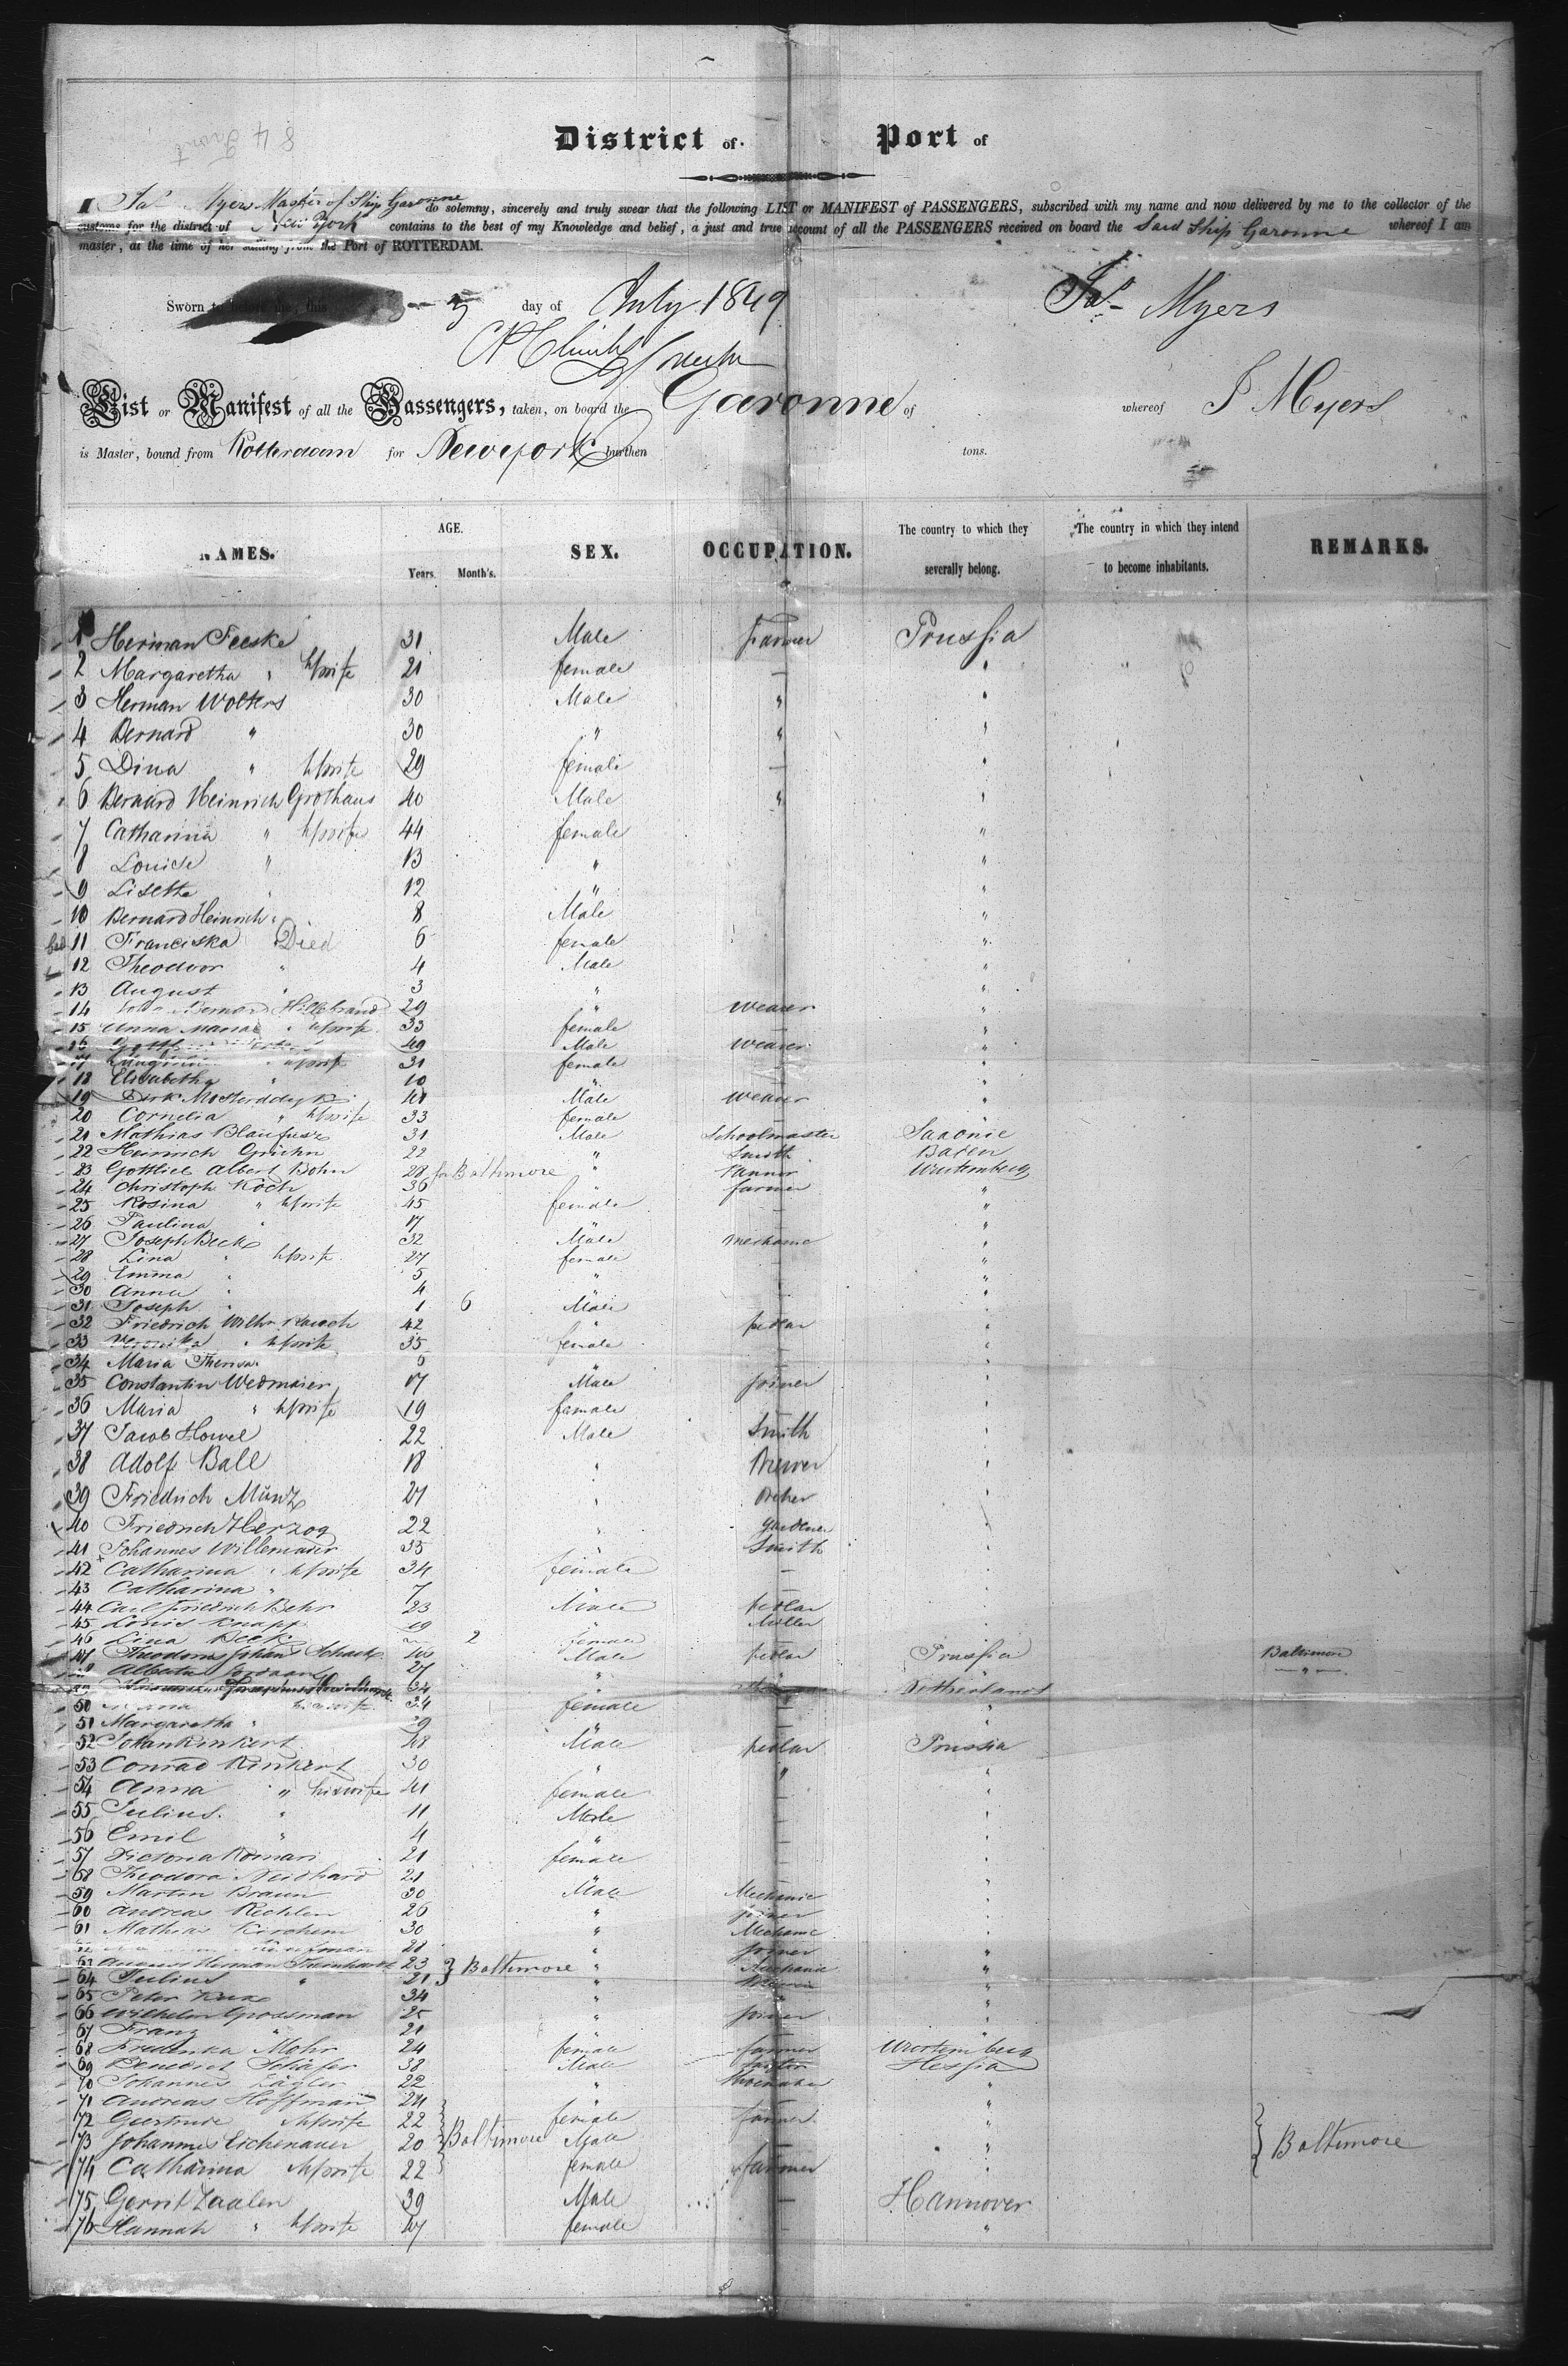 District of Port of
I Jas Myers Master of Ship Garonne do solemny, sincerely and truly swear that the following LIST or MANIFEST of PASSENGERS, subscribed with my name and now delivered by me to the collector of the
customs for the district of New York contains to the best of my Knowledge and belief, a just and true account of all the PASSENGERS received on board the Said Ship Garonne whereof I am
master, at the time of her sailing from the Port of ROTTERDAM.
Sworn to before me, this 3 day of July 1849 Jas Myers
List or Manifest of all the Passengers, taken, on board the Garonne of whereof J Myers
is Master, bound from Rotterdam for Newyork burthen tons.
NAMES. AGE. Years. Month's. SEX. OCCUPATION. The country to which they severally belong. The country in which they intend to become inhabitants. REMARKS.
1 Herman Feeske 31 Male Farmer Prussia
2 Margaretha " h/wife 21 female — "
3 Herman Wolters 30 Male " "
4 Bernard " 30 " " "
5 Dina " h/wife 29 female — "
6 Bernard Heinrich Grothaus 40 Male " "
7 Catharina " h/wife 44 female "
8 Louise " 13 " "
9 Lisette " 12 " "
10 Bernard Heinrich " 8 Male "
11 Franciska Died 6 female "
12 Theodoor " 4 Male "
13 August " 3 " "
14 Bernard Hillebrand 29 " weaver "
15 Anna Maria " h/wife 33 female — "
16 49 Male weaver "
17 " h/wife 31 female — "
18 Elisabetha " 10 " "
19 Dirk Mosterddyk 41 Male weaver "
20 Cornelia " h/wife 33 female — "
21 Mathias Blaufuss 31 Male Schoolmaster Saxonie
22 Heinrich Grühn 22 " Smith Baden
23 Gottlieb Albert Bohn 28 for Baltimore " Tanner Wurtemberg
24 Christoph Koch 36 " farmer "
25 Rosina " h/wife 45 female — "
26 Paulina " 17 " "
27 Joseph Beck 32 Male mechanic "
28 Lina " h/wife 27 female — "
29 Emma " 5 " "
30 Anna " 4 " "
31 Joseph " 1 6 Male "
32 Friedrich Wilh. Rausch 42 " pedlar "
33 Veronika " h/wife 35 female — "
34 Maria Theresa 6 " "
35 Constantin Wedmaier 17 Male joiner "
36 Maria " h/wife 19 female "
37 Jacob Howel 22 Male Smith "
38 Adolf Ball 18 " Brewer "
39 Friedrich Müntz 27 " "
40 Friedrich Herzog 22 " gardener "
41 Johannes Willemaier 35 " Smith "
42 Catharina " h/wife 34 female — "
43 Catharina " 7 " "
44 Carl Friedrich Behr 23 Male pedlar "
45 Louis Knapp 19 " Miller "
46 Lina Beck 2 female "
47 Theodorus Johan Schaek 46 Male pedlar Prussia Baltimore
48 Alberta 27 " " "
49 34 " Netherlands
50 his wife 34 female — "
51 Margaretha " 9 " — "
52 Johan Rinkert 48 Male pedlar Prussia
53 Conrad Rinkert 30 " " "
54 Anna " his wife 41 female — "
55 Julius " 11 Male — "
56 Emil " 4 " — "
57 Victoria Romari 21 female — "
58 Theodora Neidhard 21 " "
59 Martin Braun 30 Male Mechanic "
60 Andreas Rechlen 26 " joiner "
61 Mathias Kirchem 30 " Mechanic "
62 28 " joiner "
63 August Herman Reinhardt 23 } Baltimore " Mechanic "
64 Julius " 21 " "
65 Peter 34 " " "
66 Wilhelm Grossman 25 " joiner "
67 Franz " 21 " "
68 Frederika Mohr 24 female farmer Wurtemberg
69 Benedict Schäfer 38 Male Hessia
70 Johannes Zägler 22 " Shoemaker "
71 Andreas Hoffman 24 "
72 Guertrude h/wife 22 female farmer "
73 Johannes Eichenauer 20 } Baltimore Male — " } Baltimore
74 Catharina h/wife 22 female farmer "
75 Gerrit Zaalen 39 Male — Hannover
76 Hannah " h/wife 47 female — "